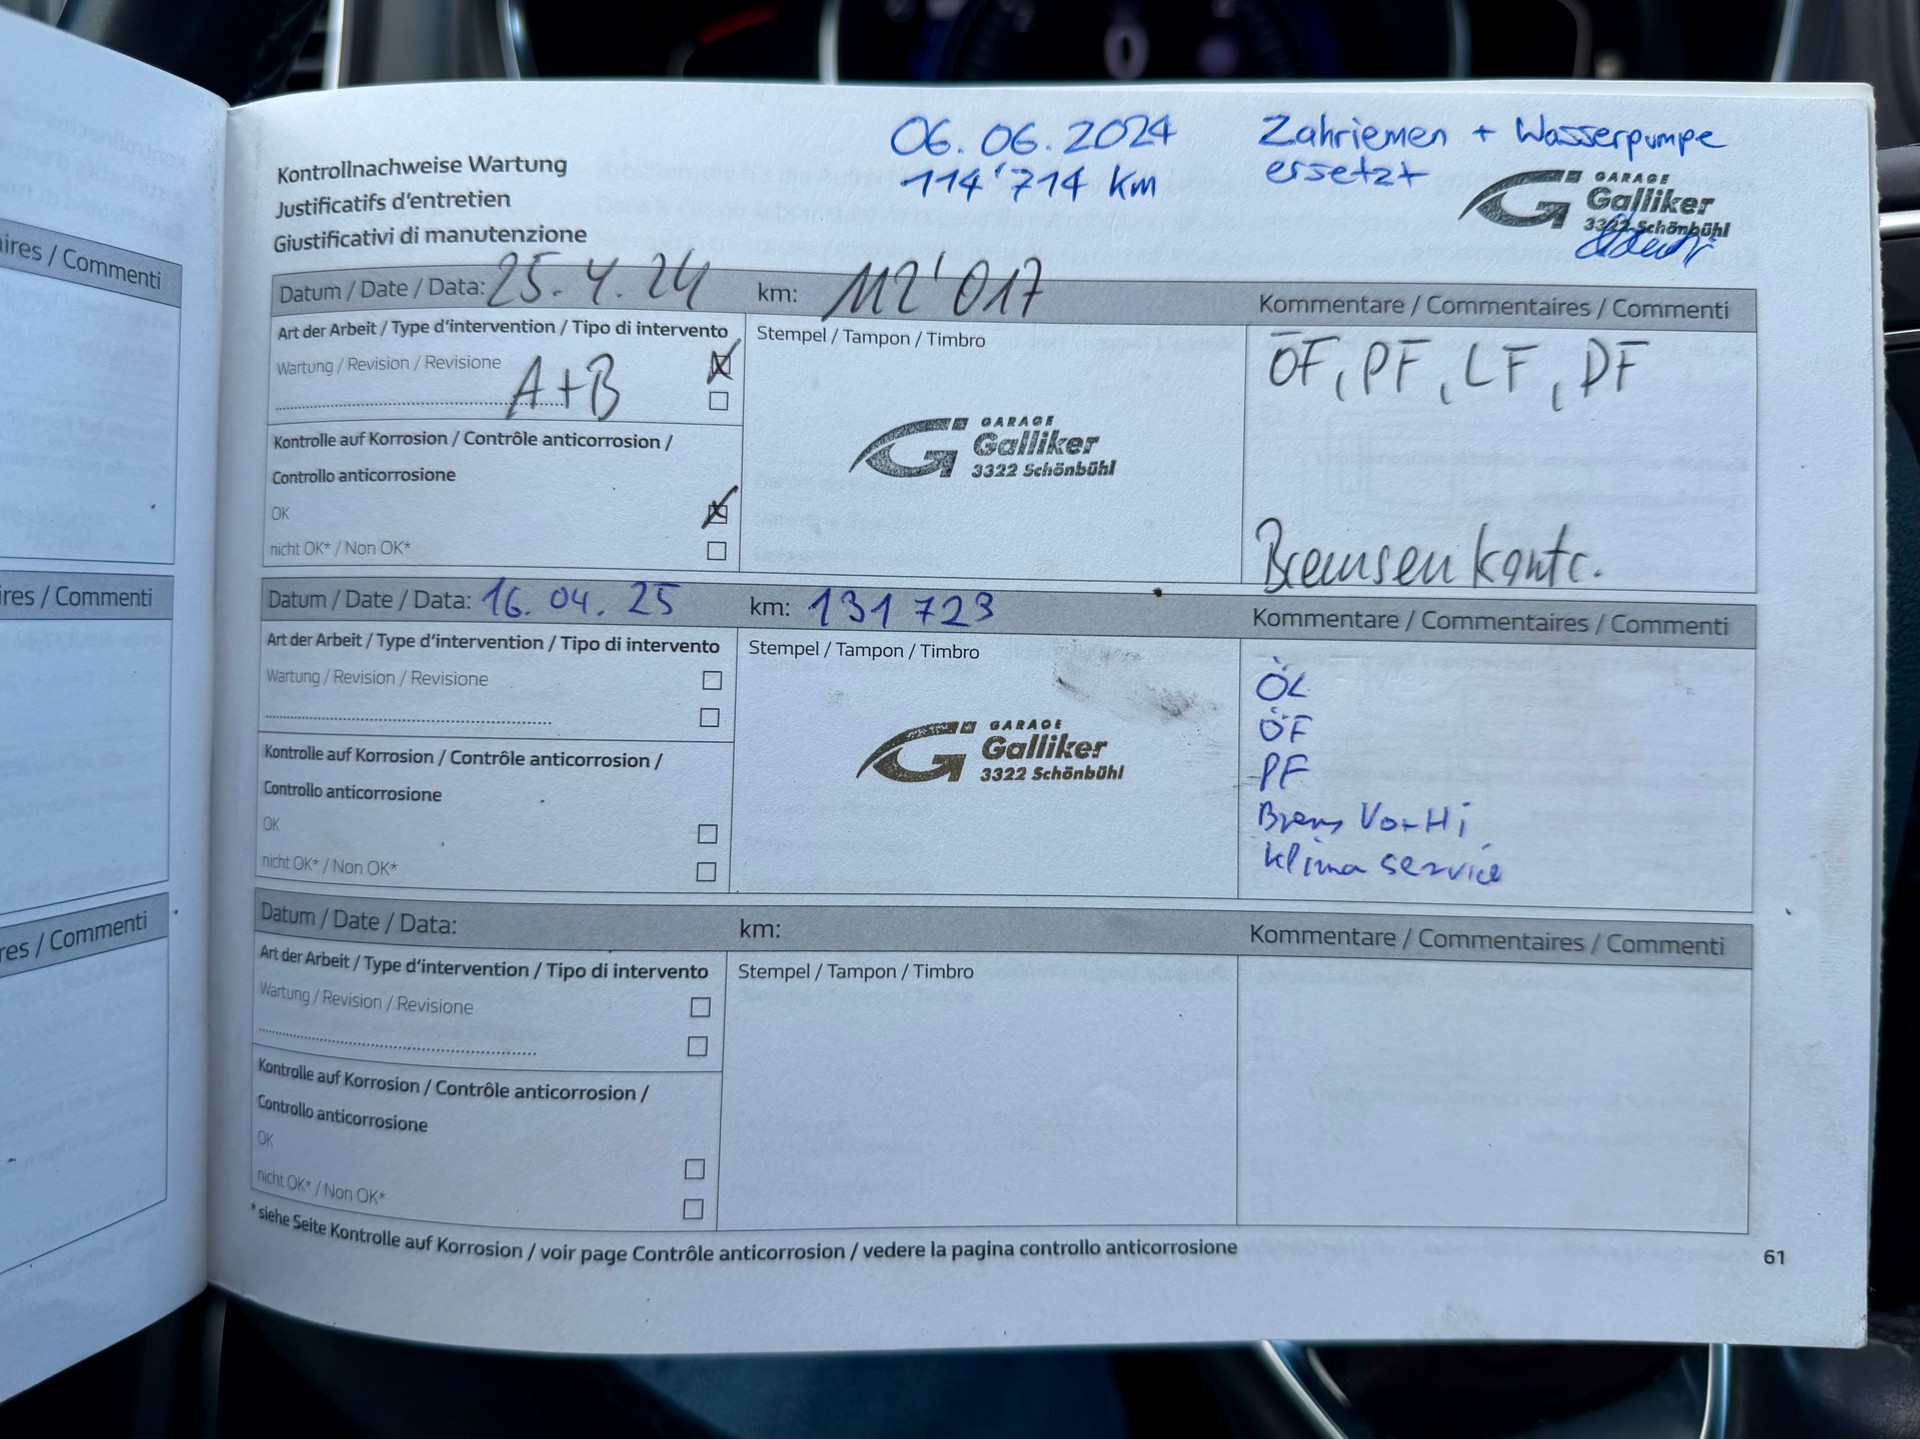 06.06.2024 Zahriemen + Wasserpumpe
114'714 km ersetzt
GARAGE
Galliker
3322 Schönbühl
Kontrollnachweise Wartung
Justificatifs d'entretien
Giustificativi di manutenzione
Datum / Date / Data: 25.4.24 km: 112'017 Kommentare / Commentaires / Commenti
Art der Arbeit / Type d'intervention / Tipo di intervento
Wartung / Revision / Revisione
A+B
Kontrolle auf Korrosion / Contrôle anticorrosion /
Controllo anticorrosione
OK
nicht OK* / Non OK*
Stempel / Tampon / Timbro
GARAGE
Galliker
3322 Schönbühl
ÖF, PF, LF, DF
Bremsen kontr.
Datum / Date / Data: 16.04.25 km: 131723 Kommentare / Commentaires / Commenti
Art der Arbeit / Type d'intervention / Tipo di intervento
Wartung / Revision / Revisione
Kontrolle auf Korrosion / Contrôle anticorrosion /
Controllo anticorrosione
OK
nicht OK* / Non OK*
Stempel / Tampon / Timbro
GARAGE
Galliker
3322 Schönbühl
ÖL
ÖF
PF
Brems Vo+Hi
Klima service
Datum / Date / Data: km: Kommentare / Commentaires / Commenti
Art der Arbeit / Type d'intervention / Tipo di intervento
Wartung / Revision / Revisione
Kontrolle auf Korrosion / Contrôle anticorrosion /
Controllo anticorrosione
OK
nicht OK* / Non OK*
Stempel / Tampon / Timbro
* siehe Seite Kontrolle auf Korrosion / voir page Contrôle anticorrosion / vedere la pagina controllo anticorrosione
61
aires / Commenti
ires / Commenti
res / Commenti
0